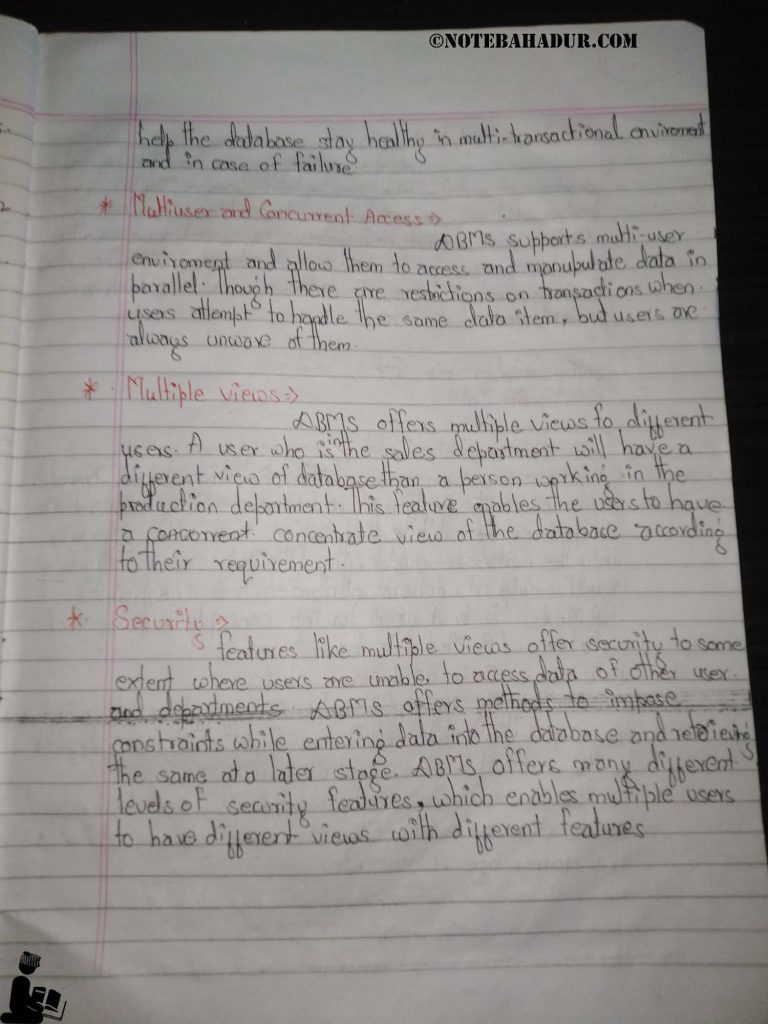 ©NOTEBAHADUR.COM
help the database stay healthy in multi-transactional enviroment
and in case of failure
* Multiuser and Concurrent Access ⇒
DBMS supports multi-user
enviroment and allow them to access and manupulate data in
parallel. Though there are restrictions on transactions when
users attempt to handle the same data item, but users are
always unware of them.
* Multiple views ⇒
DBMS offers multiple views to different
users. A user who is in the sales department will have a
different view of database than a person working in the
production department. This feature enables the users to have
a concorrent concentrate view of the database according
to their requirement.
* Security ⇒
features like multiple views offer security to some
extent where users are unable to access data of other user
and departments DBMS offers methods to impose
constraints while entering data into the database and retrieving
the same at a later stage. DBMS offers many different
levels of security features, which enables multiple users
to have different views with different features